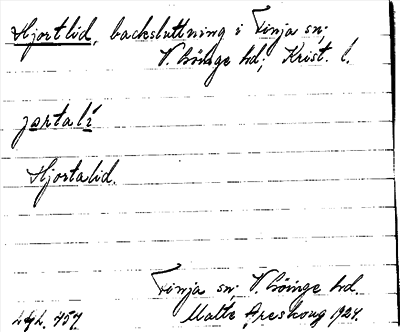 Hjortlid, backsluttning i Finja sn;
V. Göinge hd; Krist. l.
jortalí
Hjortalid.
Finja sn; V. Göinge hd.
757. Malte Areskoug 1924.